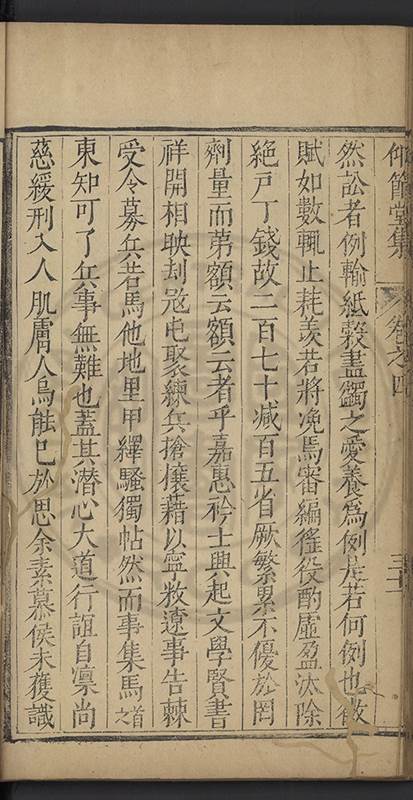 仰節堂集 卷之四 三十
然訟者例輸紙穀盡蠲之愛養為例是若何例也徵
賦如數輒止耗羨若將浼焉審編徭役酌虛盈汰除
絕戶丁錢故二百七十減百五省厥繁累不優於罔
劑量而第額云額云者乎嘉惠衿士興起文學賢書
祥開相映刦寇屯聚練兵搶攘藉以寧敉遼事告棘
受令募兵若馬他地里甲繹騷獨帖然而事集馬首之
東知可了兵事無難也蓋其潛心大道行誼自凜尚
慈緩刑入人肌膚人烏能已於思余素慕侯未獲識